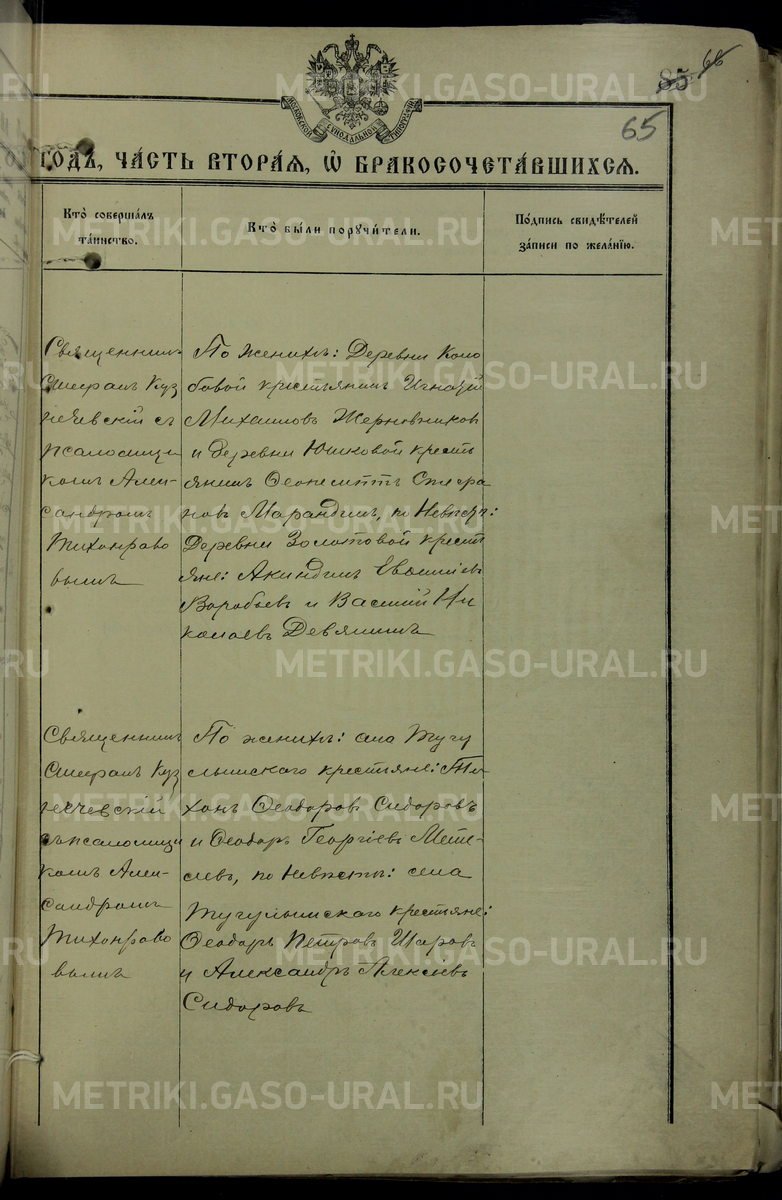 85 66
65
МОСКОВСКОЙ СѴНОДАЛЬНОЙ ТИПОГРАФІИ
ГОДЪ, ЧА́СТЬ ВТОРА́Я, Ѡ БРАКОСОЧЕТА́ВШИХСЯ.
Кто̀ соверша́лъ
та́инство.
Кто̀ бы́ли порꙋчи́тели.
По́дпись свидѣ́телей
за́писи по жела́нїю.
Священникъ
Стефанъ Куз
нечевскій съ
псаломщи
комъ Алек-
сандромъ
Тихонраво
вымъ
По женихѣ: Деревни Коло
бовой крестьянинъ Игнатій
Михаиловъ Жерновников
и деревни Юшковой кресть
янинъ Феоктистъ Стефа
новъ Марандинъ, по невѣстѣ:
Деревни Золотовой кресть
яне: Акиндинъ
Воробьевъ и Василій Ни
колаевъ Девяшинъ
Священникъ
Стефанъ Куз
нечевскій
съ псаломщи
комъ Алек-
сандромъ
Тихонраво
вымъ
По женихѣ: села Тугу
лымскаго крестьяне: Ти
хонъ Ѳеодоровъ Сидоровъ
и Ѳеодоръ Георгіевъ Мете-
левъ, по невѣстѣ: села
Тугулымскаго крестьяне:
Ѳеодоръ Петровъ Шаровъ
и Александръ Алексіевъ
Сидоровъ
METRIKI.GASO-URAL.RU